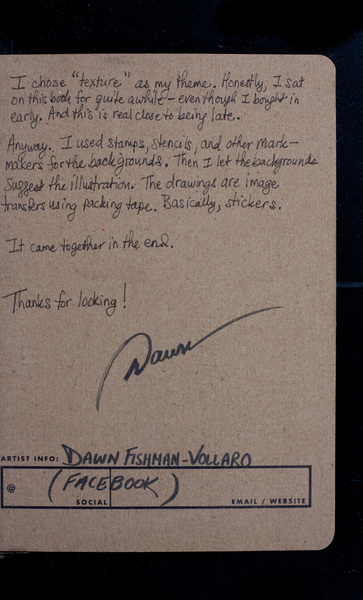 I chose "texture" as my theme. Honestly, I sat
on this book for quite awhile - even though I bought in
early. And this is real close to being late.
Anyway. I used stamps, stencils, and other mark-
makers for the backgrounds. Then I let the backgrounds
suggest the illustration. The drawings are image
transfers using packing tape. Basically, stickers.
It came together in the end.
Thanks for looking!
Dawn
ARTIST INFO: DAWN FISHMAN-VOLLARO
@ (FACEBOOK)
SOCIAL EMAIL / WEBSITE